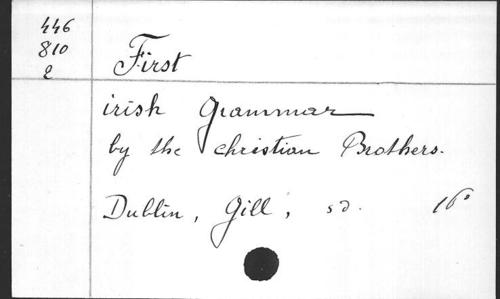 446
810
2
First
irish Grammar
by the christian Brothers.
Dublin, Gill, sd. 16°